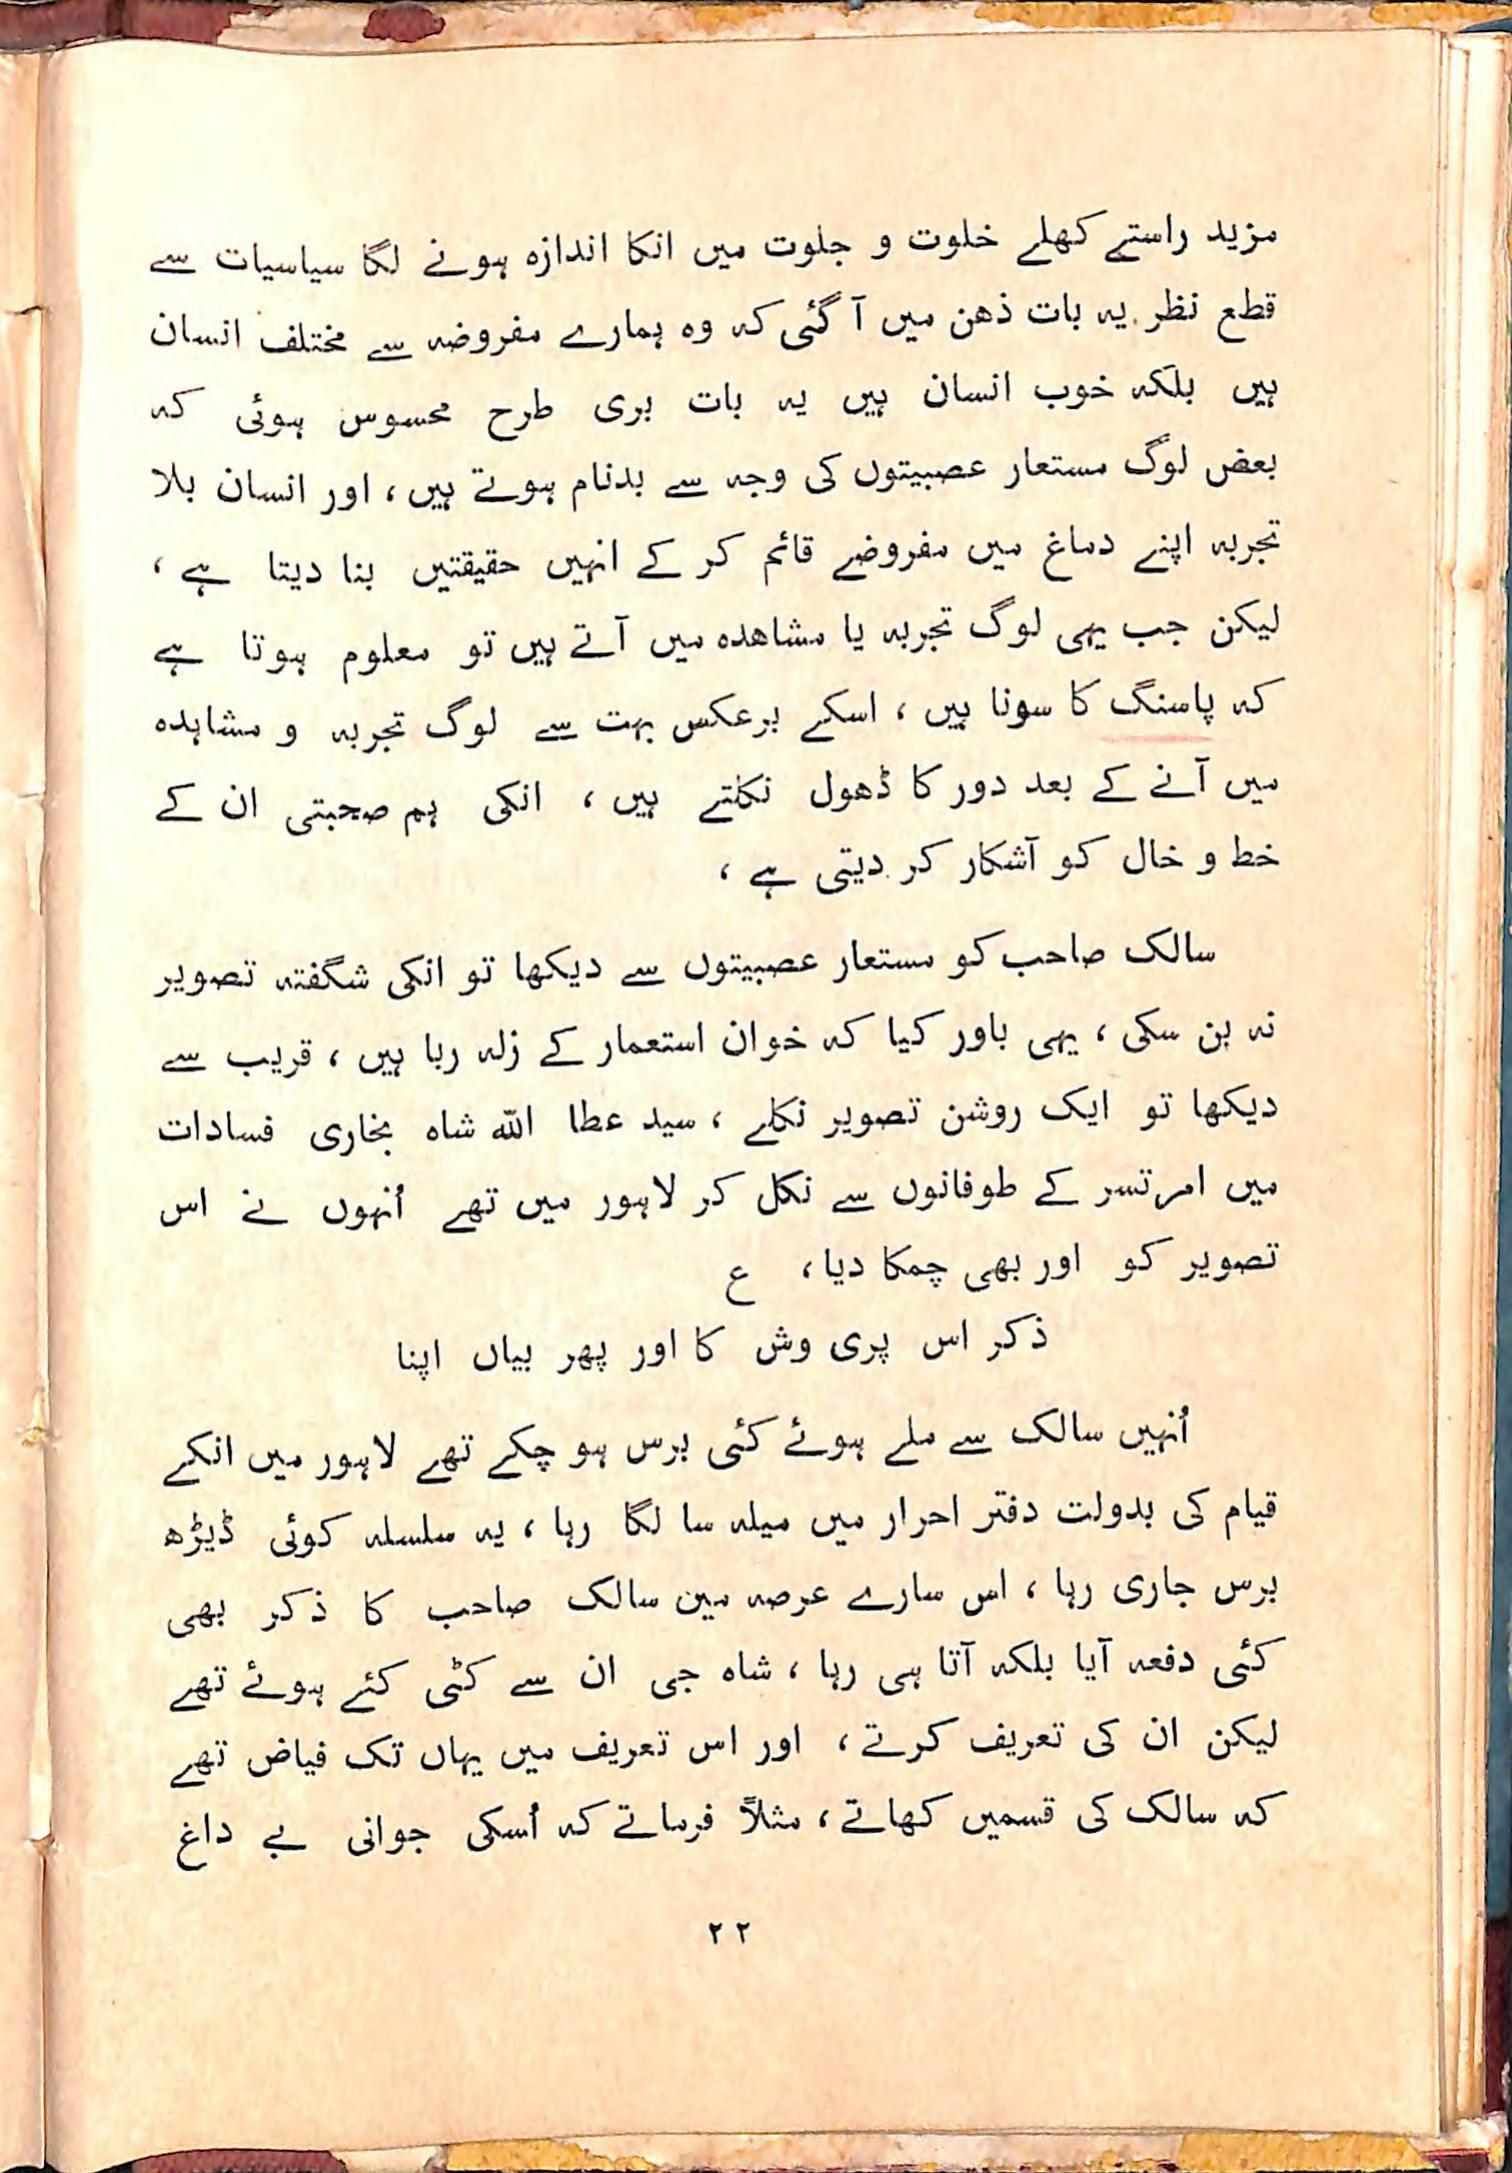 مزید راستے کھلے خلوت و جلوت میں انکا اندازہ ہونے لگا سیاسیات سے
قطع نظر یہ بات ذھن میں آ گئی کہ وہ ہمارے مفروضہ سے مختلف انسان
ہیں بلکہ خوب انسان ہیں یہ بات بری طرح محسوس ہوئی کہ
بعض لوگ مستعار عصبیتوں کی وجہ سے بدنام ہوتے ہیں ، اور انسان بلا
تجربہ اپنے دماغ میں مفروضے قائم کر کے انہیں حقیقتیں بنا دیتا ہے ،
لیکن جب یہی لوگ تجربہ یا مشاھدہ میں آتے ہیں تو معلوم ہوتا ہے
کہ پاسنگ کا سونا ہیں ، اسکے برعکس بہت سے لوگ تجربہ و مشاہدہ
میں آنے کے بعد دور کا ڈھول نکلتے ہیں ، انکی ہم صحبتی ان کے
خط و خال کو آشکار کر دیتی ہے ،
سالک صاحب کو مستعار عصبیتوں سے دیکھا تو انکی شگفتہ تصویر
نہ بن سکی ، یہی باور کیا کہ خوان استعمار کے زلہ ربا ہیں ، قریب سے
دیکھا تو ایک روشن تصویر نکلے ، سید عطا اللہ شاہ بخاری فسادات
میں امرتسر کے طوفانوں سے نکل کر لاہور میں تھے اُنہوں نے اس
تصویر کو اور بھی چمکا دیا ، ع
ذکر اس پری وش کا اور پھر بیاں اپنا
اُنہیں سالک سے ملے ہوئے کئی برس ہو چکے تھے لاہور میں انکے
قیام کی بدولت دفتر احرار میں میلہ سا لگا رہا ، یہ سلسلہ کوئی ڈیڑھ
برس جاری رہا ، اس سارے عرصہ مین سالک صاحب کا ذکر بھی
کئی دفعہ آیا بلکہ آتا ہی رہا ، شاہ جی ان سے کٹی کئے ہوئے تھے
لیکن ان کی تعریف کرتے ، اور اس تعریف میں یہاں تک فیاض تھے
کہ سالک کی قسمیں کھاتے ، مثلاً فرماتے کہ اُسکی جوانی بے داغ
۲۲